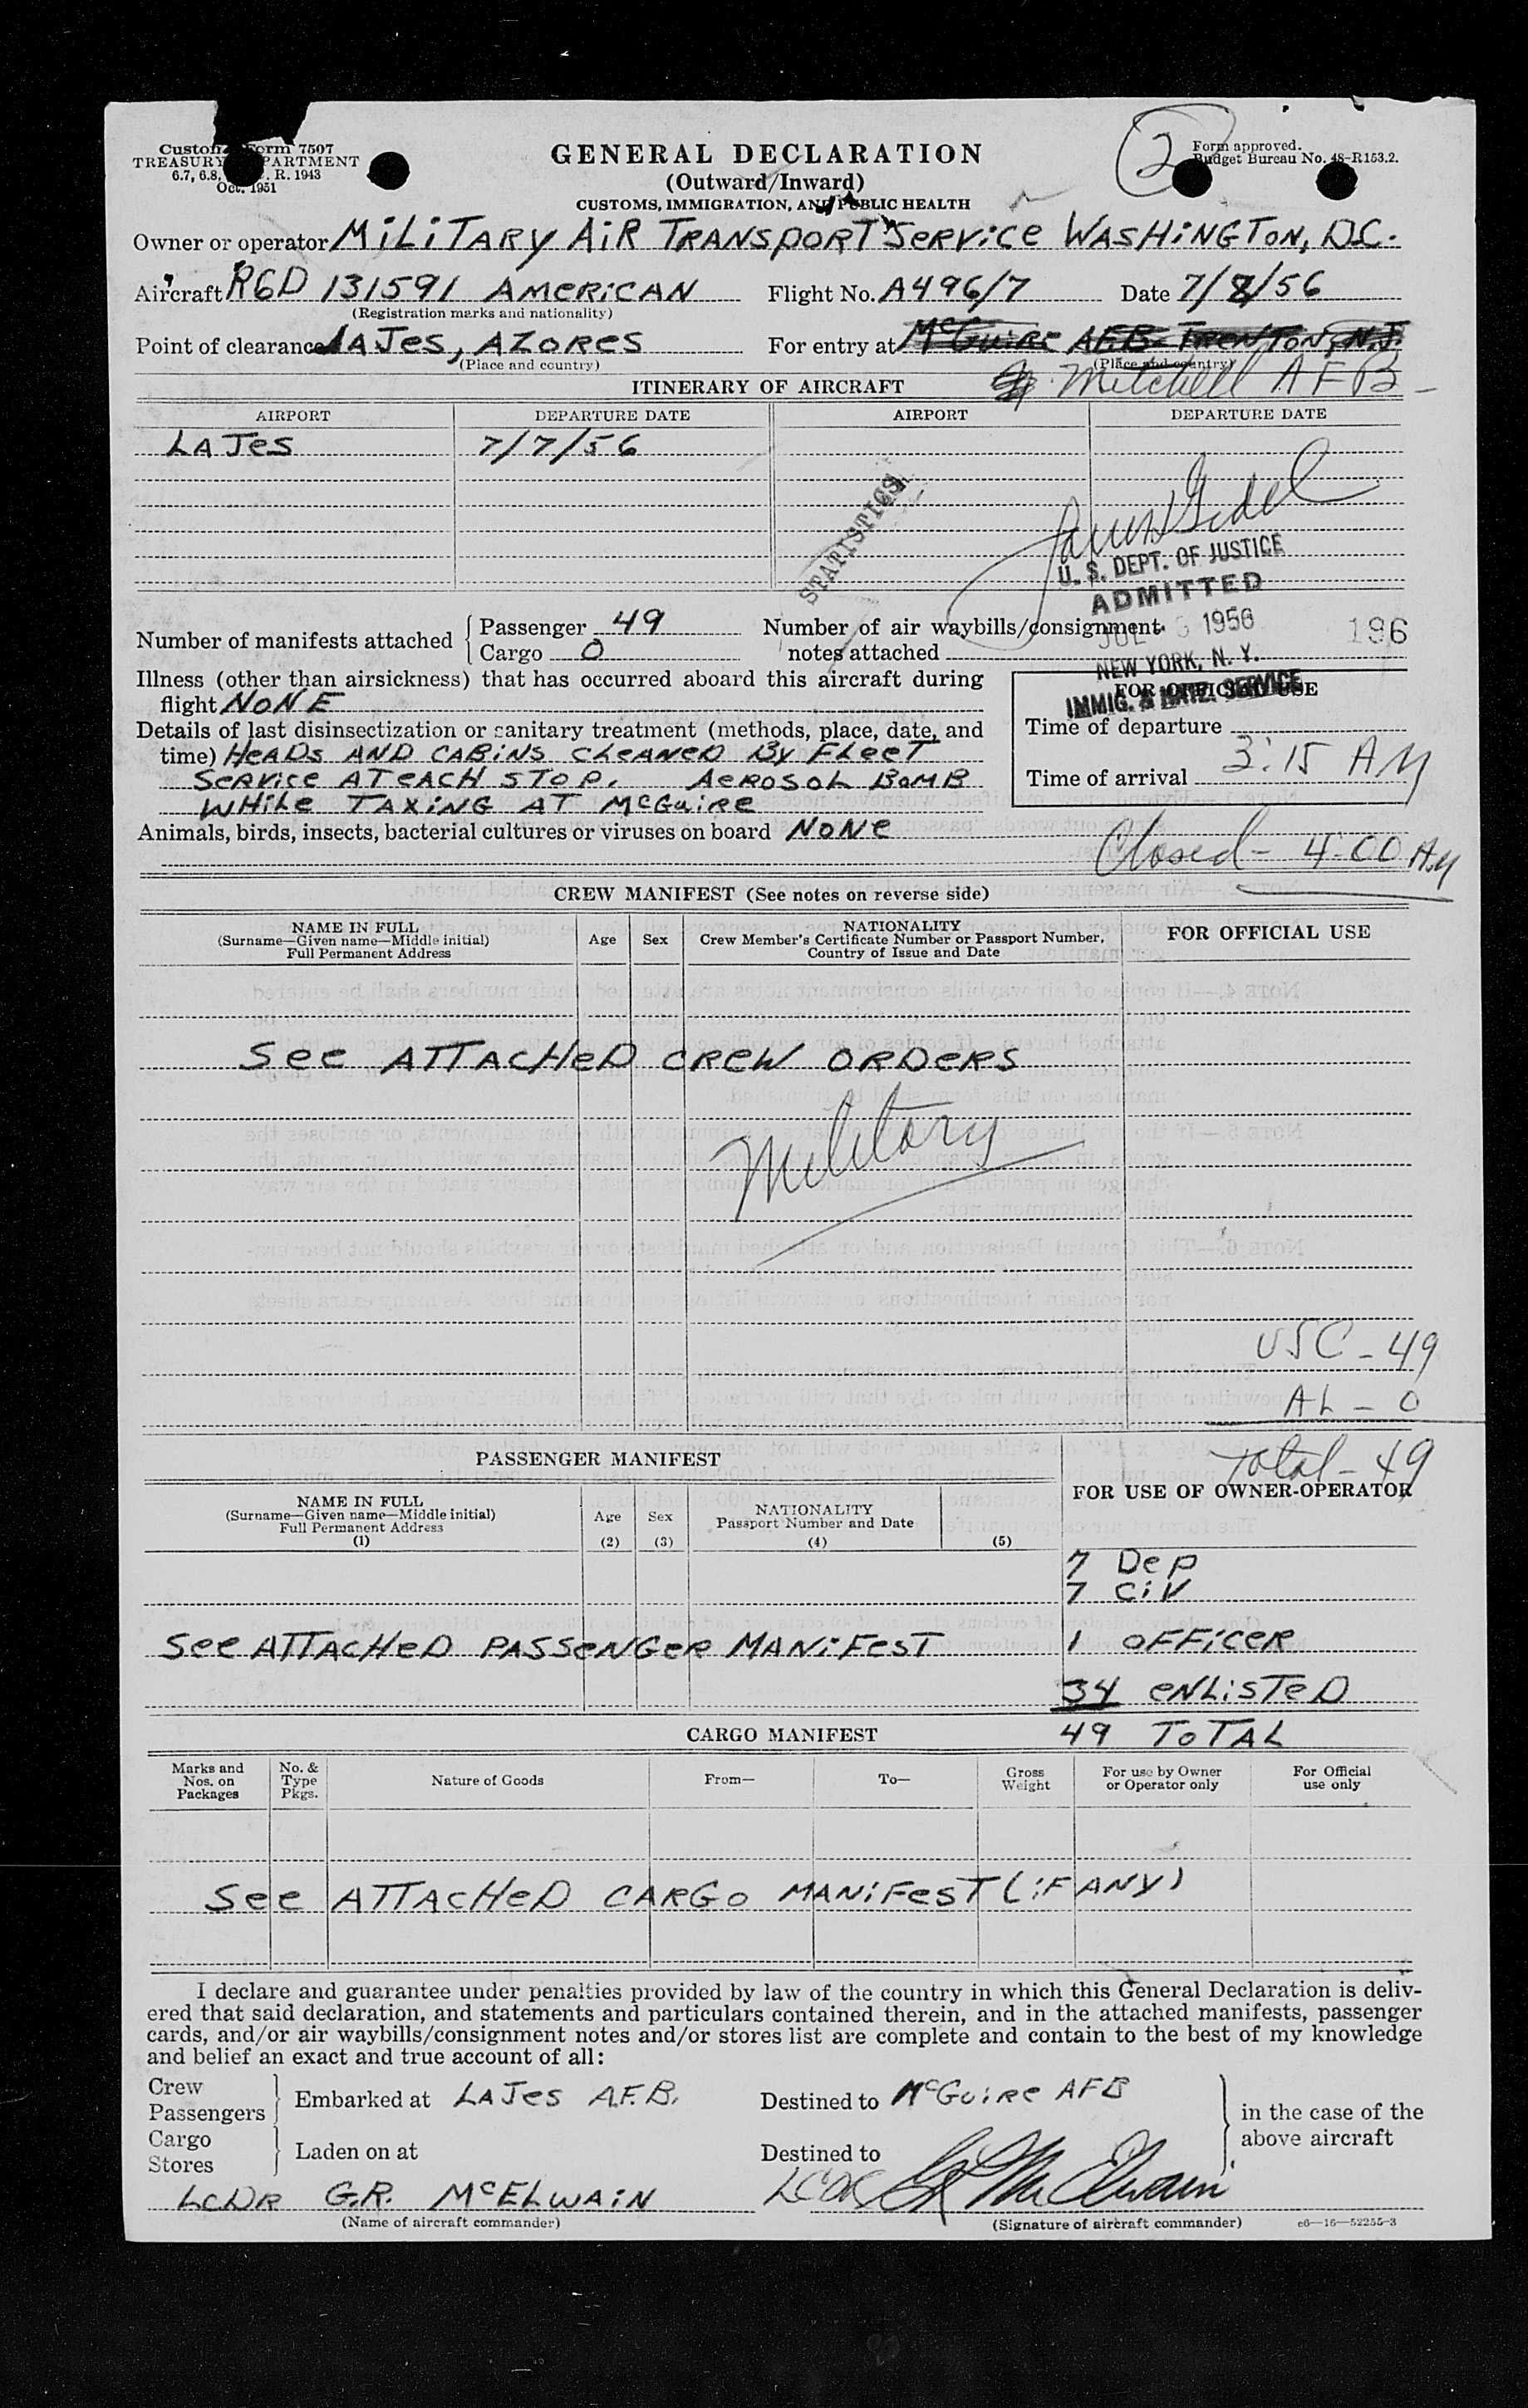 Customs Form 7507
TREASURY DEPARTMENT
6.7, 6.8, R. 1943
Oct. 1951
GENERAL DECLARATION
(Outward/Inward)
CUSTOMS, IMMIGRATION, AND PUBLIC HEALTH
2
Form approved.
Budget Bureau No. 48-R153.2.
Owner or operator MILITARY AIR TRANSPORT SERVICE WASHINGTON, D.C.
Aircraft R6D 131591 AMERICAN Flight No. A496/7 Date 7/8/56
(Registration marks and nationality)
Point of clearance LAJES, AZORES For entry at McGUIRE AFB TRENTON, N.J.
(Place and country) (Place and country)
ITINERARY OF AIRCRAFT Mitchell AFB
AIRPORT DEPARTURE DATE AIRPORT DEPARTURE DATE
LAJES 7/7/56
STATISTICS
U. S. DEPT. OF JUSTICE
ADMITTED
JUL 1956 196
NEW YORK, N. Y.
IMMIG. & NATZ. SERVICE
Number of manifests attached Passenger 49 Number of air waybills/consignment
Cargo 0 notes attached
Illness (other than airsickness) that has occurred aboard this aircraft during
flight NONE
FOR OFFICIAL USE
Details of last disinsectization or sanitary treatment (methods, place, date, and
time) HEADS AND CABINS CLEANED BY FLEET
SERVICE AT EACH STOP. AEROSOL BOMB
WHILE TAXING AT McGUIRE
Time of departure
Time of arrival 3:15 AM
Animals, birds, insects, bacterial cultures or viruses on board NONE
Closed - 4:00 AM
CREW MANIFEST (See notes on reverse side)
NAME IN FULL
(Surname—Given name—Middle initial)
Full Permanent Address
Age Sex
NATIONALITY
Crew Member's Certificate Number or Passport Number,
Country of Issue and Date
FOR OFFICIAL USE
SEE ATTACHED CREW ORDERS
Military
USC - 49
AL - 0
Total - 49
PASSENGER MANIFEST
FOR USE OF OWNER-OPERATOR
NAME IN FULL
(Surname—Given name—Middle initial)
Full Permanent Address
(1)
Age
(2)
Sex
(3)
NATIONALITY
Passport Number and Date
(4) (5)
7 DEP
7 CIV
SEE ATTACHED PASSENGER MANIFEST 1 OFFICER
34 ENLISTED
CARGO MANIFEST 49 TOTAL
Marks and Nos. on Packages No. & Type Pkgs. Nature of Goods From— To— Gross Weight For use by Owner or Operator only For Official use only
SEE ATTACHED CARGO MANIFEST (IF ANY)
I declare and guarantee under penalties provided by law of the country in which this General Declaration is deliv-
ered that said declaration, and statements and particulars contained therein, and in the attached manifests, passenger
cards, and/or air waybills/consignment notes and/or stores list are complete and contain to the best of my knowledge
and belief an exact and true account of all:
Crew
Passengers Embarked at LAJES A.F.B. Destined to McGUIRE AFB
in the case of the
above aircraft
Cargo
Stores Laden on at Destined to
LCDR G.R. McELWAIN LCDR G R McElwain
(Name of aircraft commander) (Signature of aircraft commander) c6—16—52255-3